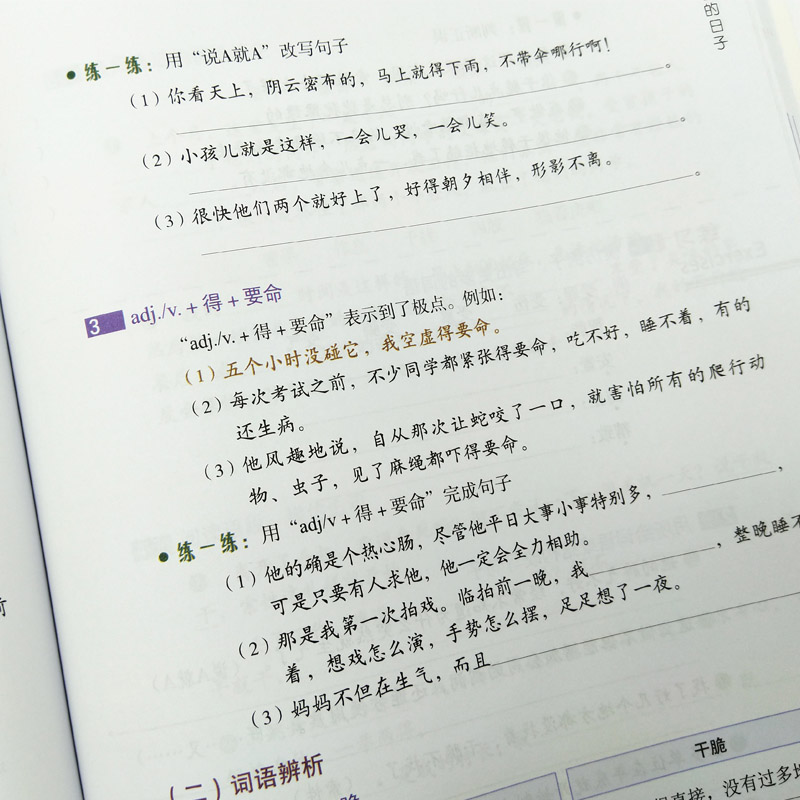 的日子
练一练：用“说A就A”改写句子
（1）你看天上，阴云密布的，马上就得下雨，不带伞哪行啊！
。
（2）小孩儿就是这样，一会儿哭，一会儿笑。
。
（3）很快他们两个就好上了，好得朝夕相伴，形影不离。
。
3 adj./v.+得+要命
“adj./v.+得+要命”表示到了极点。例如：
（1）五个小时没碰它，我空虚得要命。
（2）每次考试之前，不少同学都紧张得要命，吃不好，睡不着，有的
还生病。
（3）他风趣地说，自从那次让蛇咬了一口，就害怕所有的爬行动
物、虫子，见了麻绳都吓得要命。
练一练：用“adj/v+得+要命”完成句子
（1）他的确是个热心肠，尽管他平日大事小事特别多，，
可是只要有人求他，他一定会全力相助。
（2）那是我第一次拍戏。临拍前一晚，我，整晚睡不
着，想戏怎么演，手势怎么摆，足足想了一夜。
（3）妈妈不但在生气，而且
（二）词语辨析
干脆
直接，没有过多